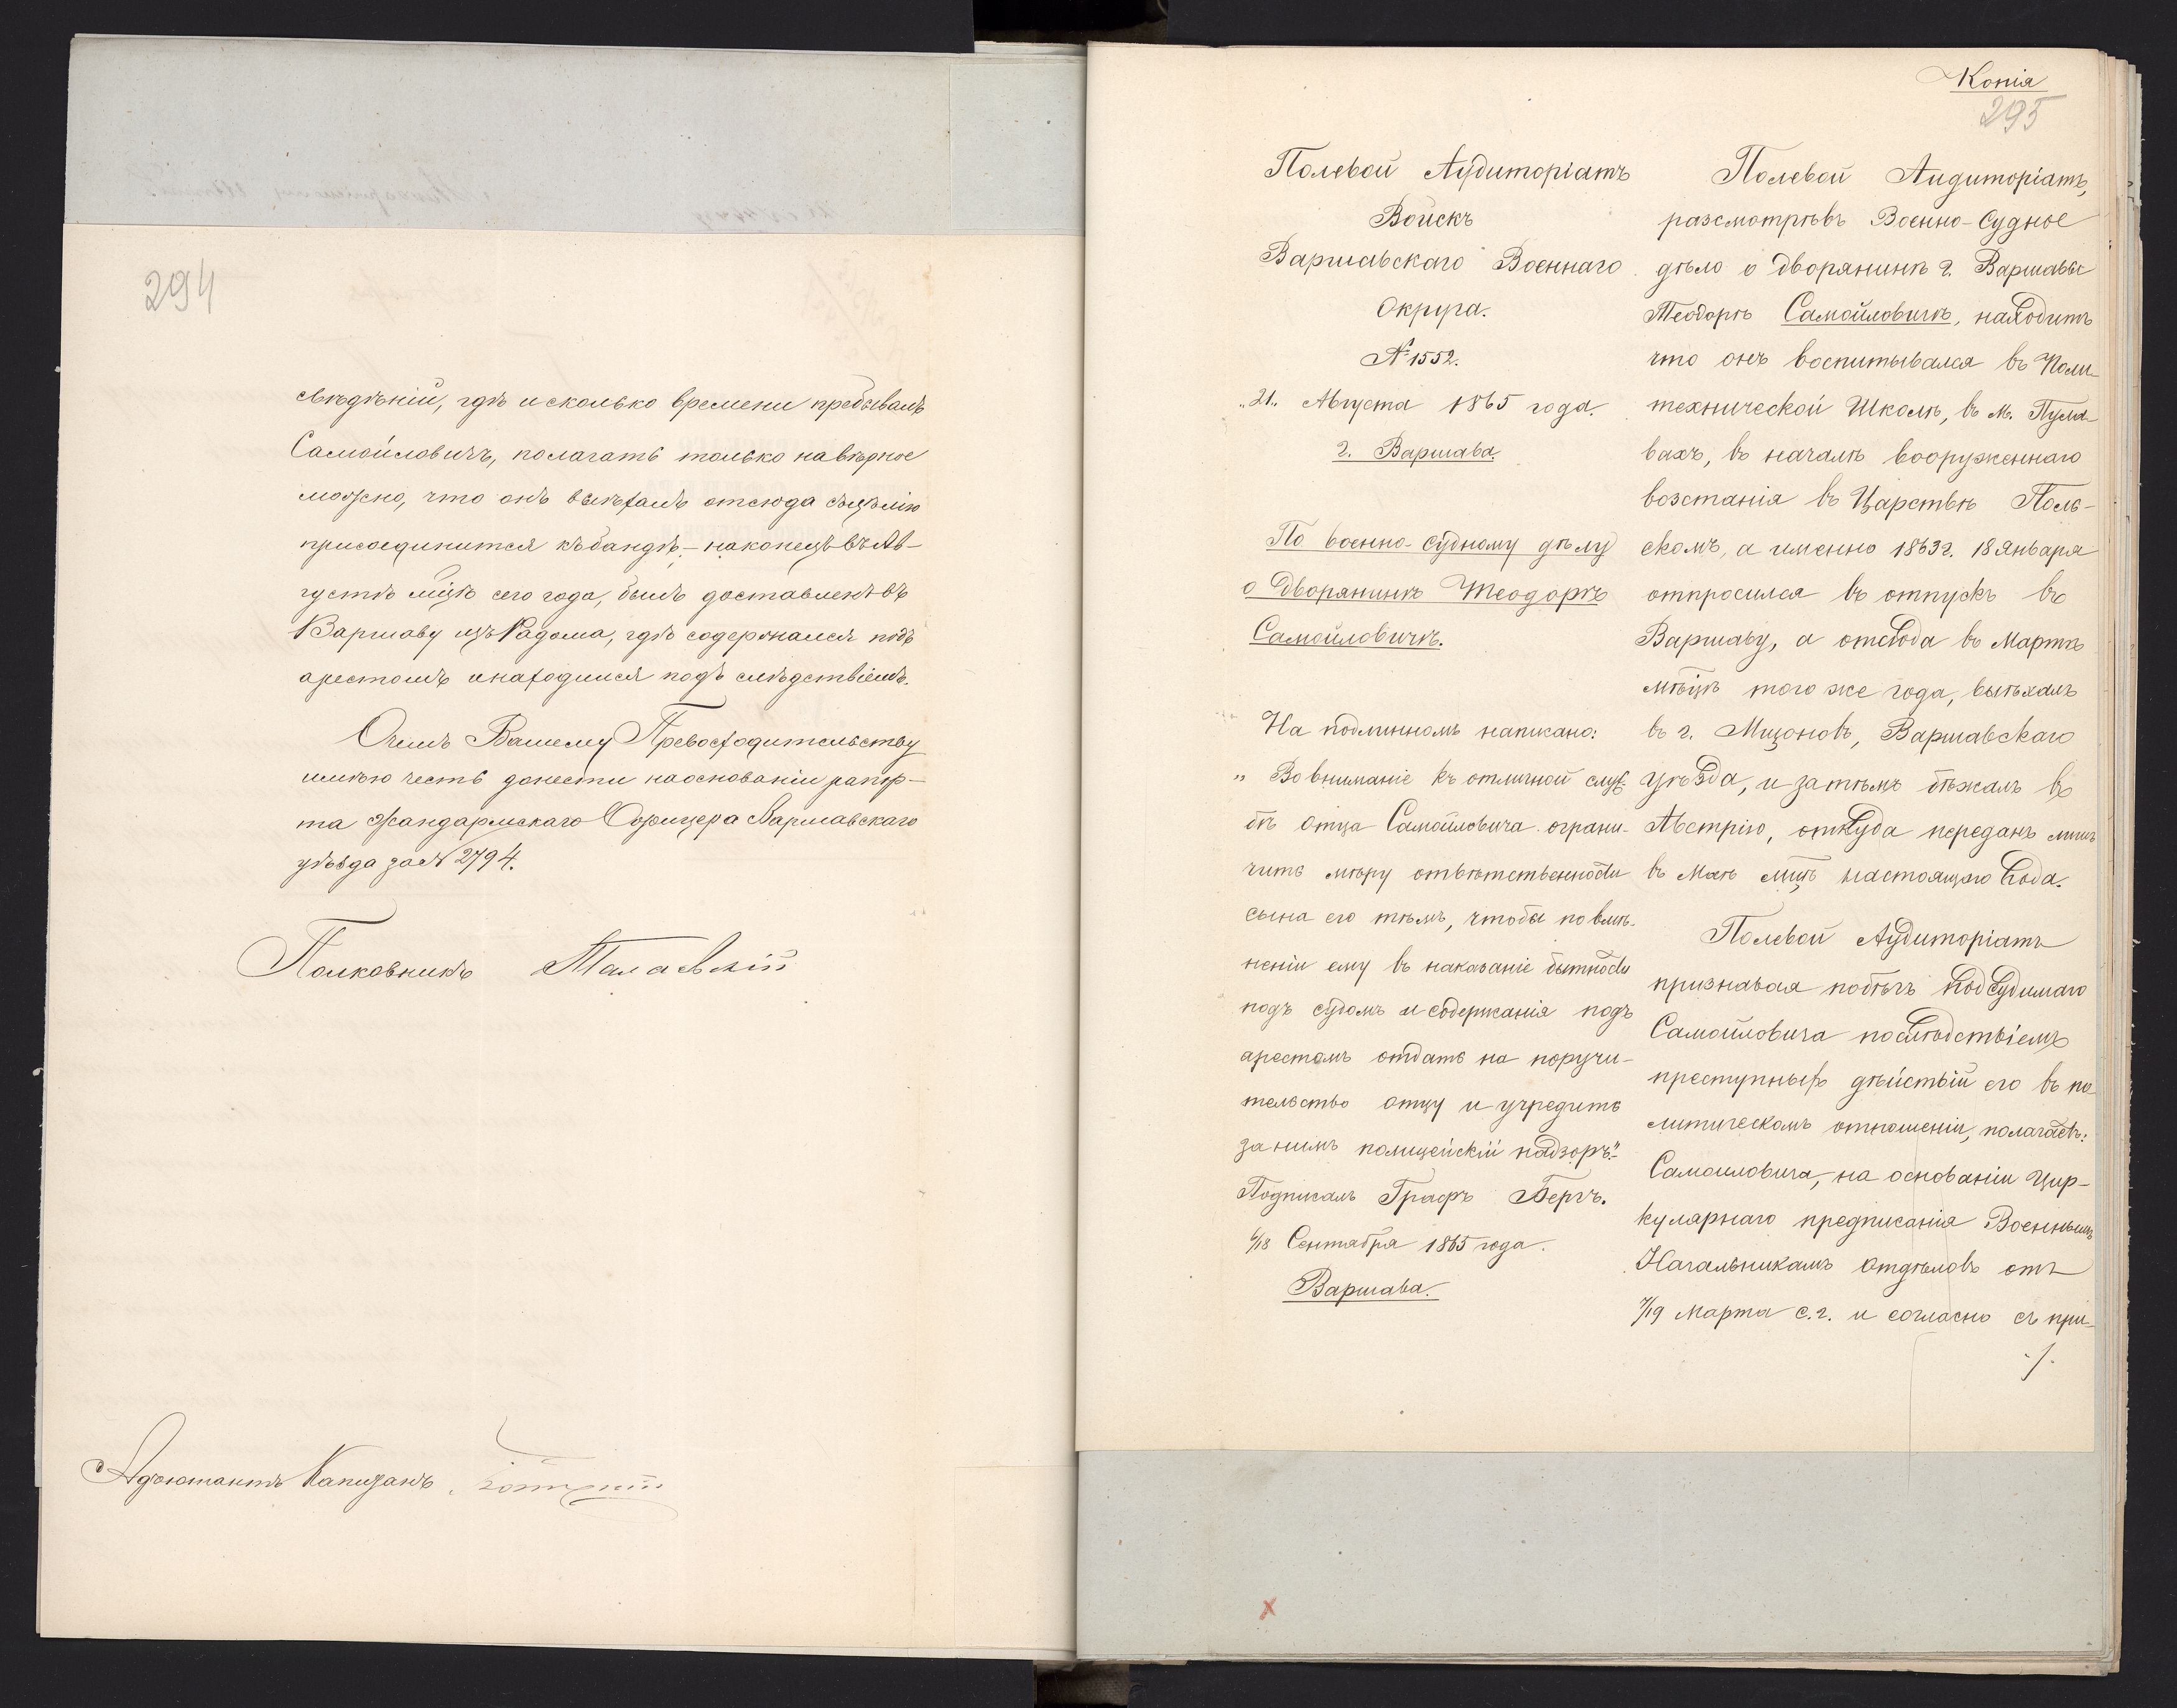 294
свѣдѣній, гдѣ и сколько времени пребывалъ
Самойловичъ, полагать только навѣрное
можно, что онъ выѣхалъ отсюда съ цѣлію
присоединится къ бандѣ, – наконецъ въ Ав-
густѣ мцѣ сего года, былъ доставленъ въ
Варшаву изъ Радома, гдѣ содержался подъ
арестомъ и находился подъ слѣдствіемъ.
О чемъ Вашему Превосходительству
имѣю честь донести на основаніи рапор-
та Жандармскаго Офицера Варшавскаго
уѣзда за № 2794.
Полковникъ
Адъютантъ Капитанъ
Копія
295
Полевой Аудиторіатъ
Войскъ
Варшавскаго Военнаго
Округа.
№ 1552.
„21„ Августа 1865 года.
г. Варшава.
По военно-судному дѣлу
о Дворянинѣ Теодорѣ
Самойловичѣ.
На подлинномъ написано:
„ Во вниманіе къ отличной служ-
бѣ отца Самойловича ограни-
чить мѣру отвѣтственности
сына его тѣмъ, чтобы по вмѣ-
неніи ему въ наказаніе бытности
подъ судомъ и содержанія подъ
арестомъ отдать на поручи-
тельство отцу и учредить
за нимъ полицейскій надзоръ".
Подписалъ Графъ Бергъ.
6/18 Сентября 1865 года.
Варшава.
Полевой Аидиторіатъ,
разсмотрѣвъ Военно-Судное
дѣло о дворянинѣ г. Варшавы
Теодорѣ Самойловичѣ, находитъ
что онъ воспитывался въ Поли-
технической Школѣ, въ м. Пула-
вахъ, въ началѣ вооруженнаго
возстанія въ Царствѣ Поль-
скомъ, а именно 1863 г. 18 Января
отпросился въ отпускъ въ
Варшаву, а отсюда въ Мартѣ
мѣцѣ того же года, выѣхалъ
въ г. Мщоновъ, Варшавскаго
уѣзда, и за тѣмъ бѣжалъ въ
Австрію, откуда переданъ лишь
въ Маѣ мцѣ настоящаго года.
Полевой Аудиторіатъ
признавая побѣгъ подсудимаго
Самойловича послѣдствіемъ
преступныхъ дѣйствій его въ по-
литическомъ отношеніи, полагаетъ:
Самоиловича, на основаніи Цир-
кулярнаго предписанія Военнымъ
Начальникамъ отдѣловъ отъ
7/19 Марта с.г. и согласно съ при-
./.